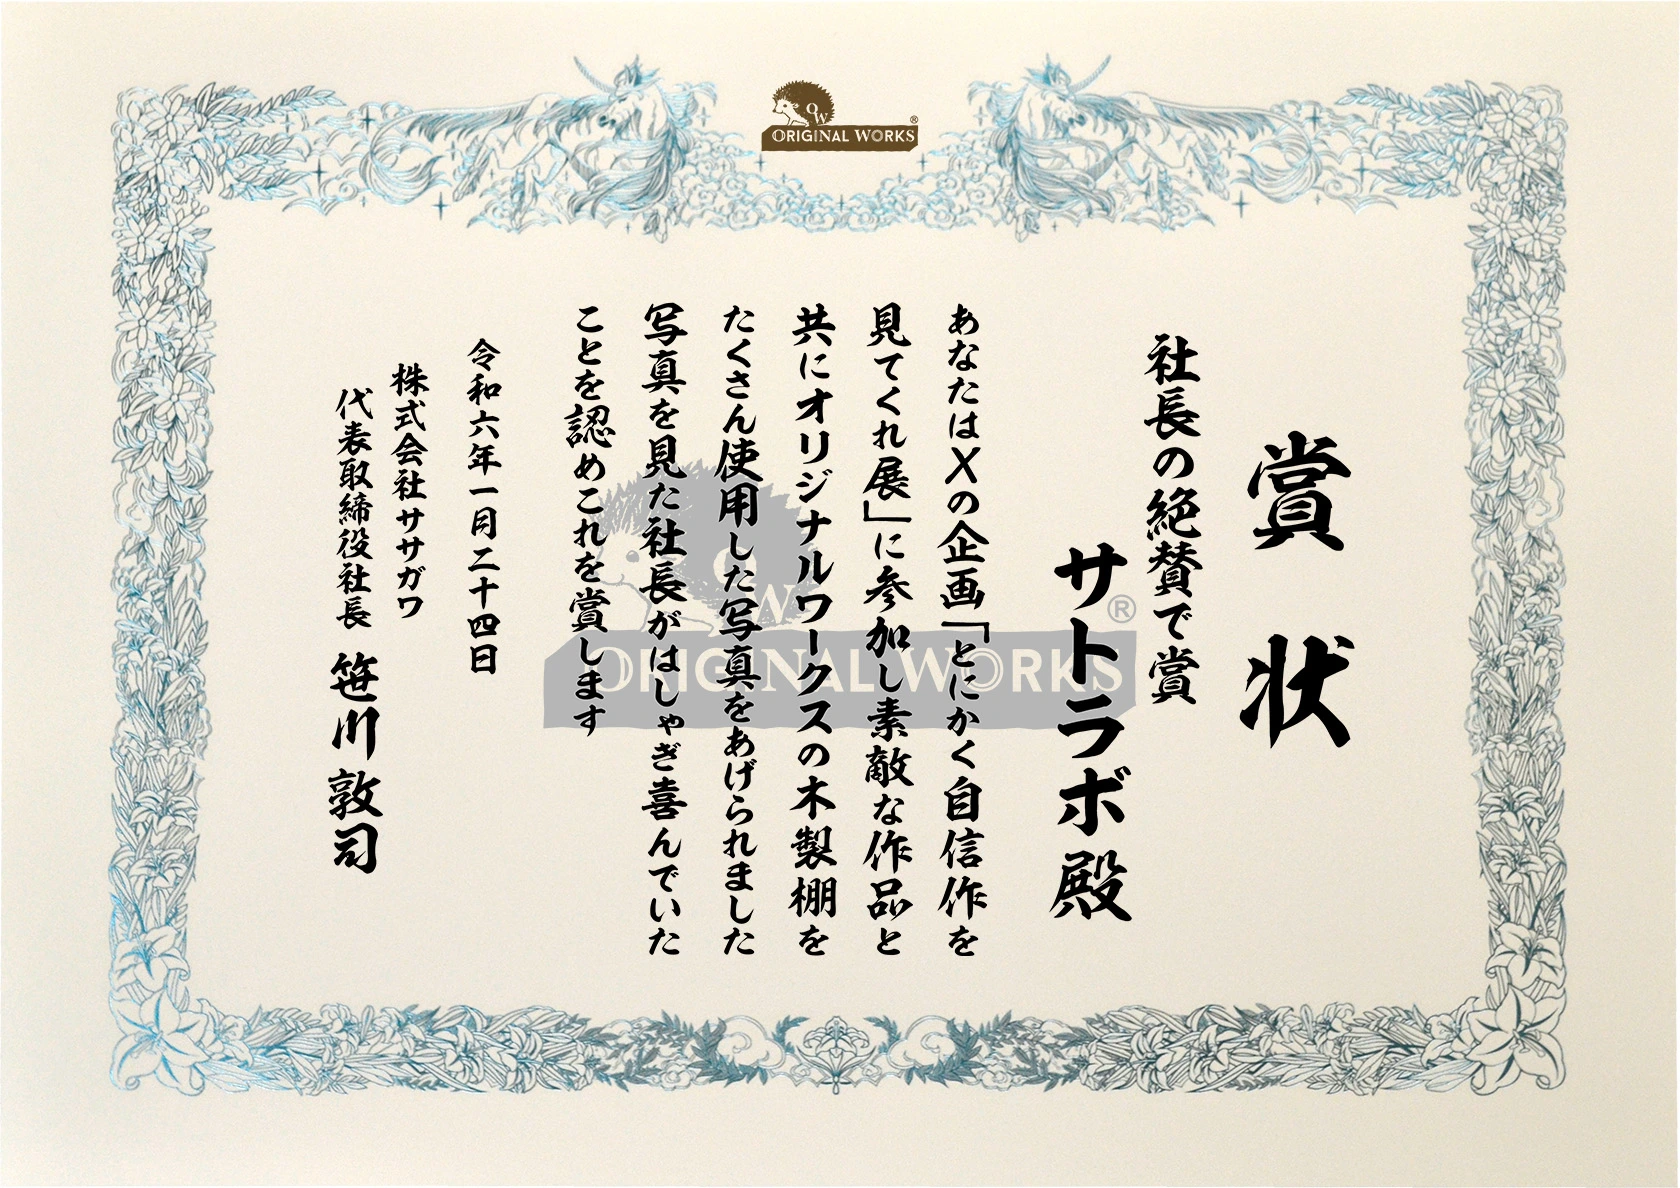 OW
ORIGINAL WORKS®
賞状
社長の絶賛で賞
サトラボ殿
あなたはXの企画「とにかく自信作を
見てくれ展」に参加し素敵な作品と
共にオリジナルワークスの木製棚を
たくさん使用した写真をあげられました
写真を見た社長がはしゃぎ喜んでいた
ことを認めこれを賞します
令和六年一月二十四日
株式会社ササガワ
代表取締役社長 笹川敦司
OW
ORIGINAL WORKS®